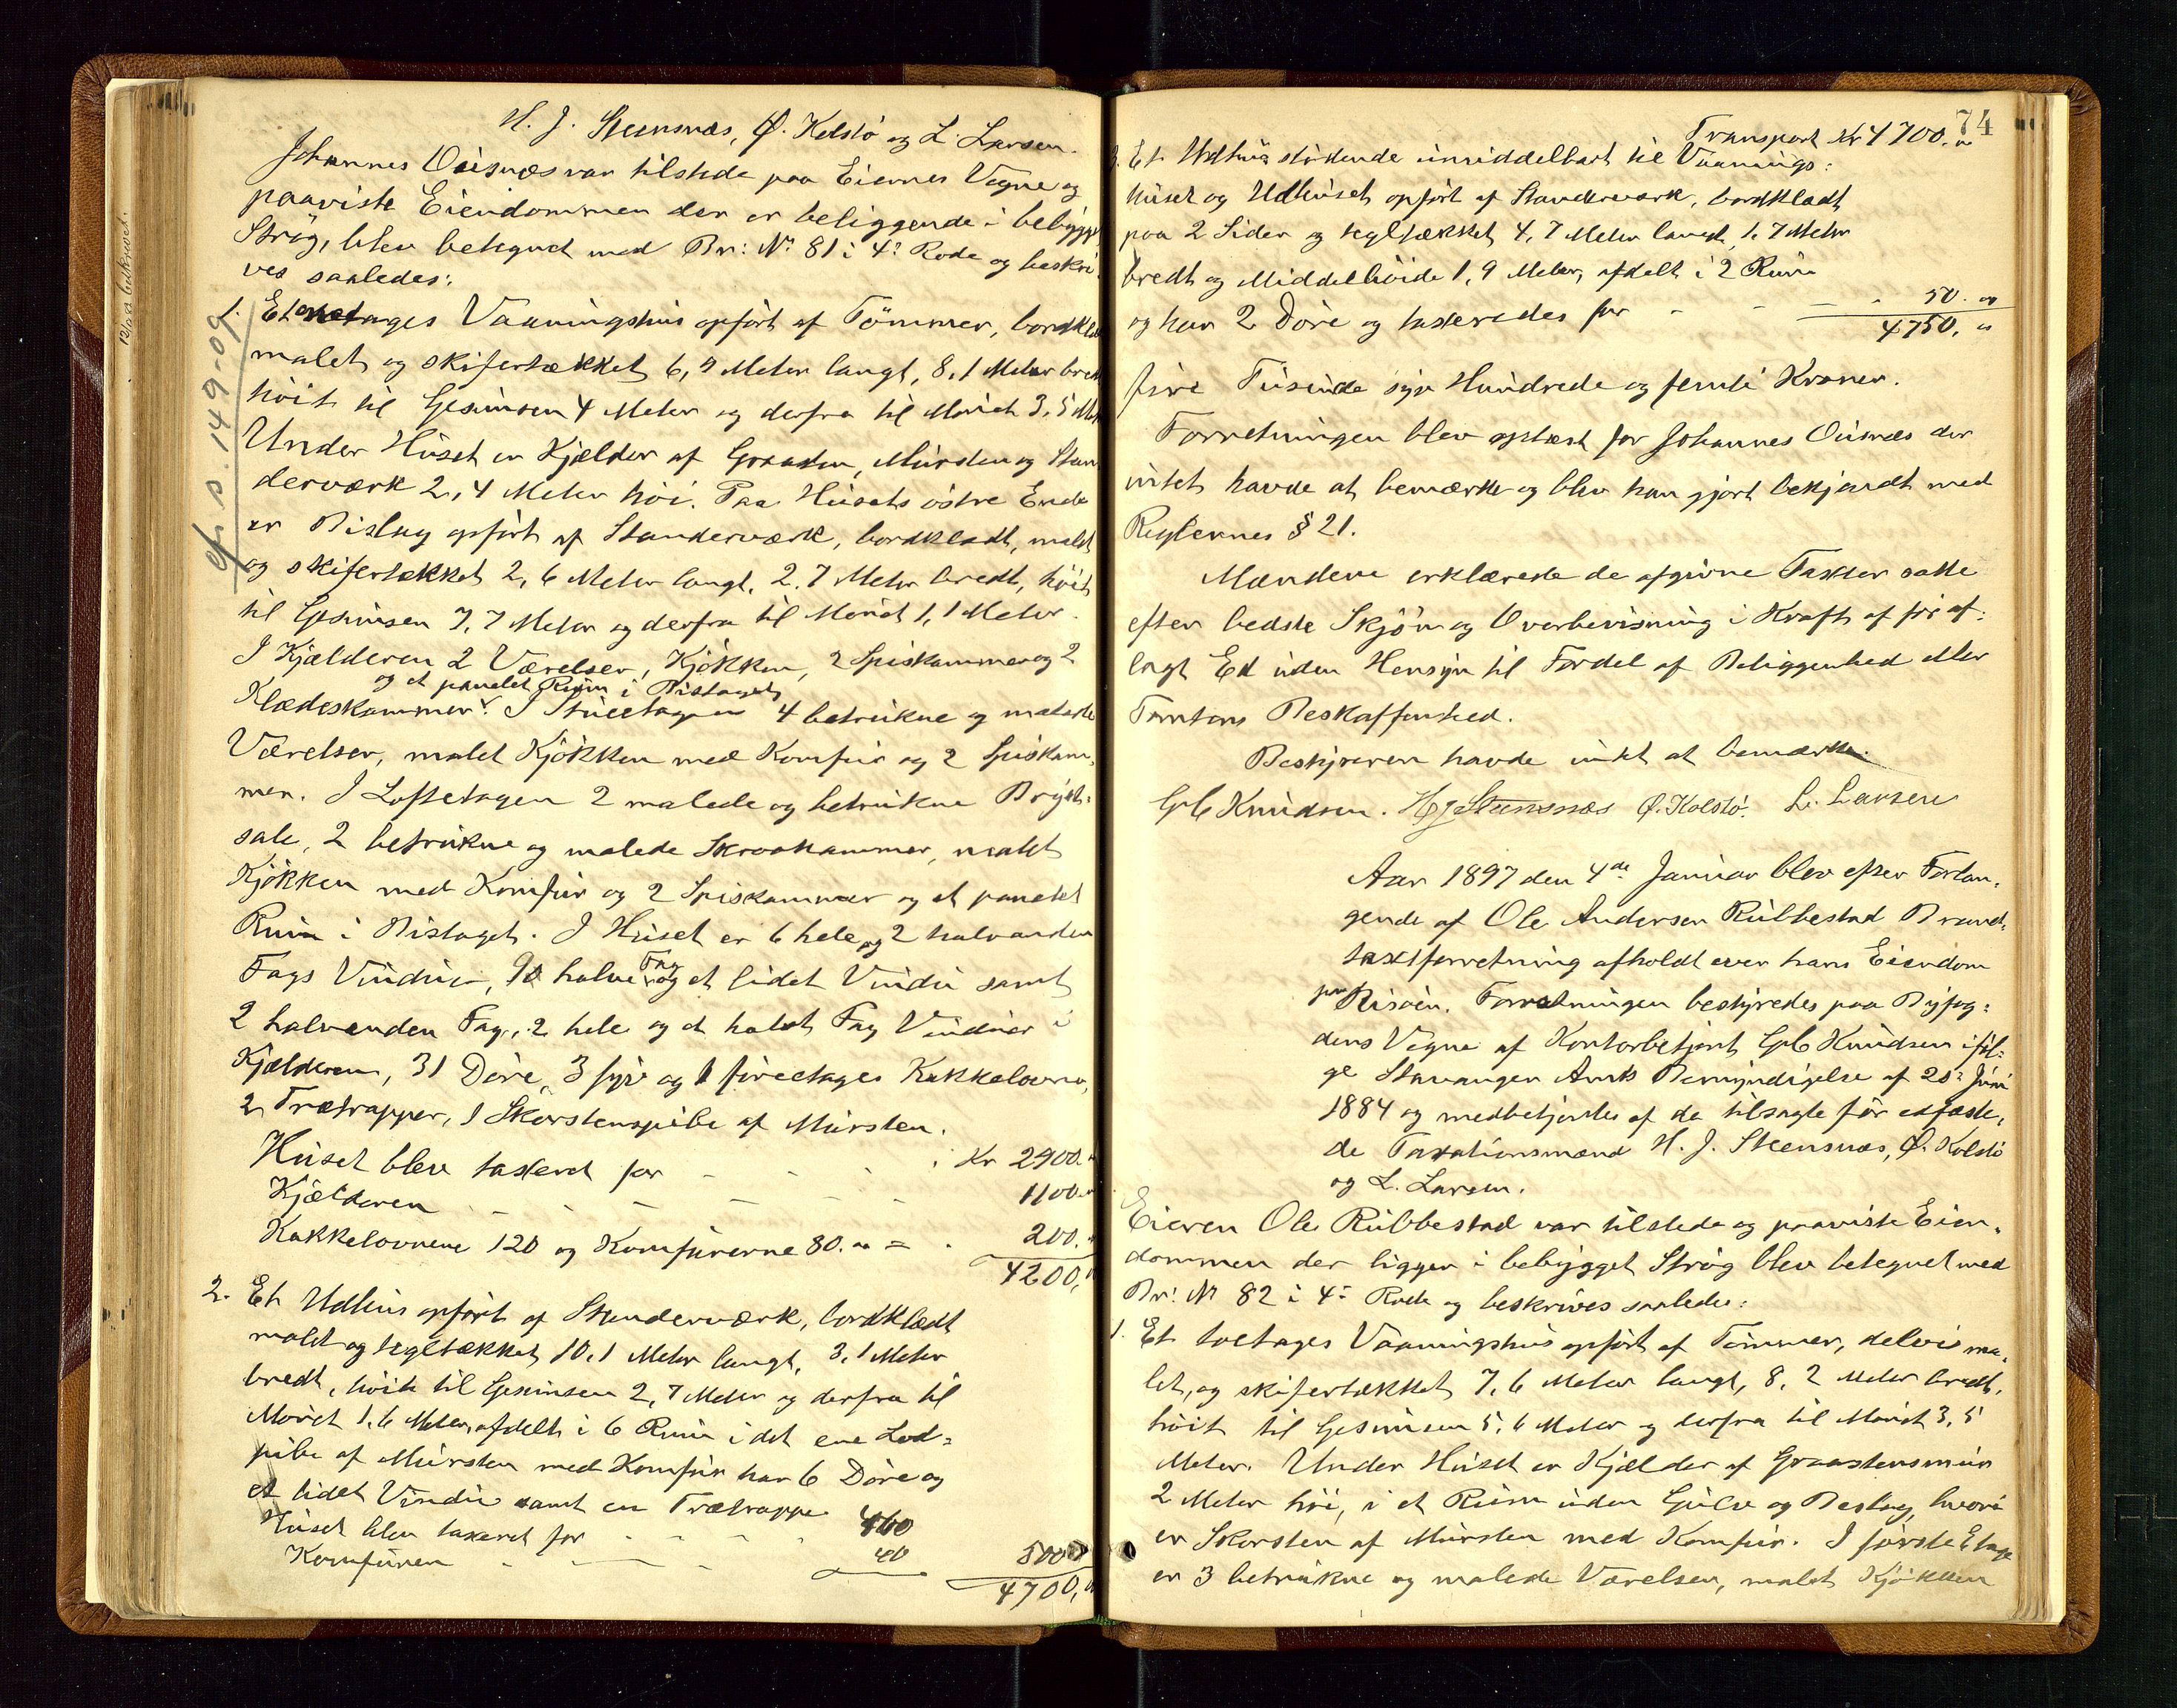 H. J. Steensnæs, Ø. Kolstö og L. Larsen.
Johannes Oisnæs var tilstede paa Eiernes Vegne og
paaviste Eiendommen der er beliggende i bebygget
Strög, blev betegnet med Br: No 81 i 4de Rode og beskri-
ves saaledes:
1. Et etages Vaaningshus opfört af Tömmer, bordklædt
malet og skifertækket 6,9 Meter langt, 8,1 Meter bredt
höit til Gesimsen 4 Meter og derfra til Mönet 3,5 Met
Under Huset er Kjælder af Graasten, Mursten og Stan
derværk 2,4 Meter höi. Paa Husets östre Ende
er Bislag opfört af Standerværk, bordklædt, malet
og skifertækket 2,6 Meter langt, 2,7 Meter bredt, höit
til Gesimsen 7,7 Meter og derfra til Mönet 1,1 Meter.
I Kjælderen 2 Værelser, Kjökken, 2 Spiskammer og 2
og et panelet Rum i Bislaget
Klædeskammer. I Stueetagen 4 betrukne og malede
Værelser, malet Kjökken med Komfur og 2 Spiskam-
mer. I Loftetagen 2 malede og betrukne Bryst=
sale, 2 betrukne og malede Skraakammer, malet
Kjökken med Komfur og 2 Spiskammer og et panelet
Rum i Bislaget. I Huset er 6 hele og 2 halvanden
Fags Vinduer, 10 halve Fag og et lidet Vindu samt
2 halvanden Fag, 2 hele og et halvt Fag Vinduer i
Kjælderen, 31 Döre, 3 fyre og 1 fireetages Kakkelovne,
2 Trætrapper, 1 Skorstenspibe af Mursten.
Huset blev taxeret for - - - Kr 2900.
Kjælderen - - - 1100.
Kakkelovnene 120 og Komfurerne 80. = 200.
4200,
2. Et Udhus opfört af Standerværk, bordklædt
malet og tegltækket 10,1 Meter langt, 3,1 Meter
bredt, höit til Gesimsen 2,7 Meter og derfra til
Mönet 1,6 Meter, afdelt i 6 Rum i det ene Lod=
pibe af Mursten med Komfur har 6 Döre og
et lidet Vindu samt en Trætrappe
Huset blev taxeret for - - - 460
Komfuren - - - 40 500
4700,
cfr. s. 149-09
74
Transport Kr 4700.
3. Et Udhus stödende umiddelbart til Vaanings=
huset og Udhuset opfört af Standerværk, bordklædt
paa 2 Sider og tegltækket 4,7 Meter langt, 1,7 Meter
bredt og Middelhöide 1,9 Meter, afdelt i 2 Rum
og har 2 Döre og taxeredes for - - - 50.
4750,
fire Tusinde syv Hundrede og femti Kroner.
Forretningen blev oplæst for Johannes Oisnæs der
intet havde at bemærke og blev han gjort bekjendt med
Reglernes § 21.
Mændene erklærede de afgivne Taxter satte
efter bedste Skjön og Overbevisning i Kraft af för af=
lagt Ed uden Hensyn til Fordel af Beliggenhed eller
Tomtens Beskaffenhed.
Bestyreren havde intet at bemærke.
Knudsen. H J Steensnæs Ø. Kolstö. L. Larsen
Aar 1897 den 4de Januar blev efter Forlan-
gende af Ole Andersen Rubbestad Brand-
taxtforretning afholdt over hans Eiendom
paa Risöen. Forretningen bestyredes paa Byfog=
dens Vegne af Kontorbetjent Knudsen iföl=
ge Stavanger Amts Bemyndigelse af 20de Juni
1884 og medbetjentes af de tilsagte för edfæste-
de Taxationsmænd H. J. Steensnæs, Ø. Kolstö
og L. Larsen.
Eieren Ole Rubbestad var tilstede og paaviste Eien-
dommen der ligger i bebygget Strög blev betegnet med
Br: No 82 i 4de Rode og beskrives saaledes:
1. Et toetages Vaaningshus opfört af Tömmer, delvis ma-
let, og skifertækket 7,6 Meter langt, 8,2 Meter bredt,
höit til Gesimsen 5,6 Meter og derfra til Mönet 3,5
Meter. Under Huset er Kjælder af Graastensmur
2 Meter höi, i et Rum uden Gulv og Beslag, hvori
er Skorsten af Mursten med Komfur. I förste Etage
er 3 betrukne og malede Værelser, malet Kjökken